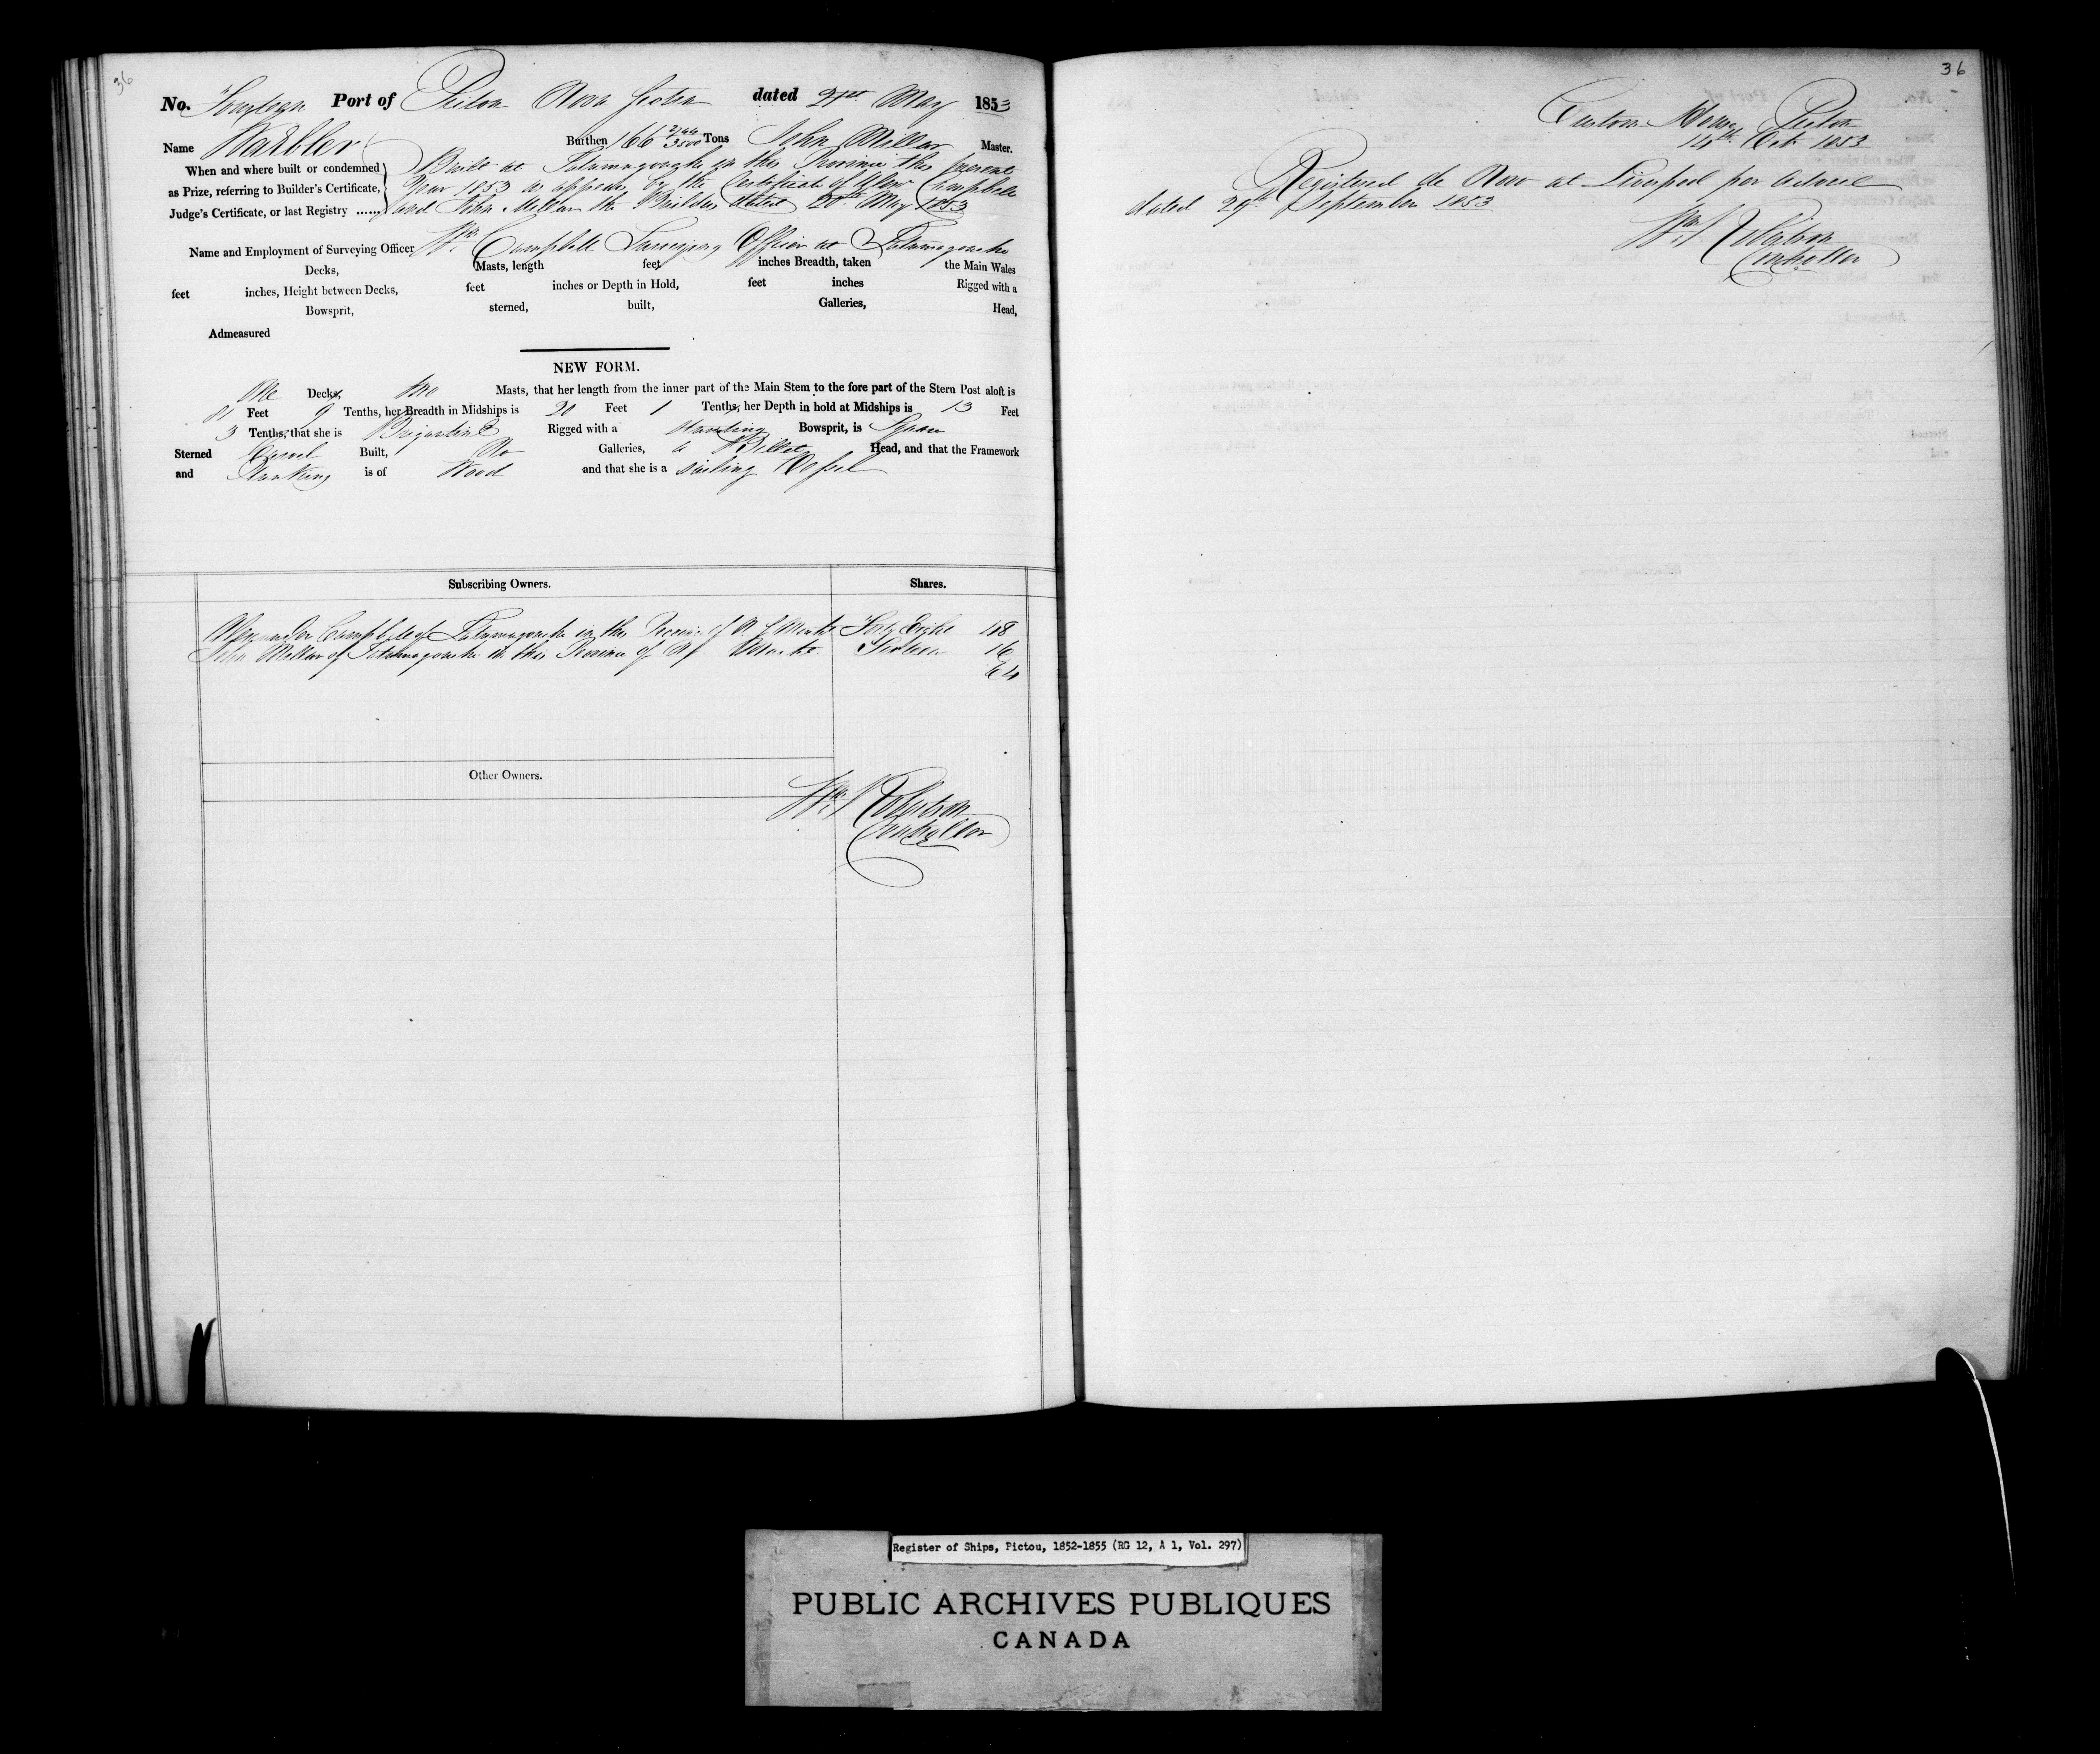 36
No. Fourteen Port of Pictou Nova Scotia dated 21st May 1853
Name Warbler Burthen 166 Tons John Millar Master.
When and where built or condemned
as Prize, referring to Builder's Certificate,
Judge's Certificate, or last Registry ......
Built at Tatamagouche in this Province this present
Year 1853 as appears by the Certificate of Alexr Campbell
and John Millar the Builders dated 20th May 1853
Name and Employment of Surveying Officer Wm. Campbell Surveying Officer at Tatamagouche
Decks, Masts, length feet inches Breadth, taken the Main Wales
feet inches, Height between Decks, feet inches or Depth in Hold, feet inches Rigged with a
Bowsprit, sterned, built, Galleries, Head,
Admeasured
NEW FORM.
One Decks, two Masts, that her length from the inner part of the Main Stem to the fore part of the Stern Post aloft is
81 Feet 9 Tenths, her Breadth in Midships is 20 Feet 1 Tenths, her Depth in hold at Midships is 13 Feet
3 Tenths, that she is Brigantine Rigged with a standing Bowsprit, is Square
Sterned Carvel Built, No Galleries, a Billet Head, and that the Framework
and Planking is of Wood and that she is a sailing Vessel
Subscribing Owners. Shares.
Alexander Campbell of Tatamagouche in the Province of N. S. Forty Eight 48
John Millar of Tatamagouche in this Province of N S. Sixteen 16
64
Other Owners.
Wm Robertson
Controller
36
Custom House Pictou
14th Oct. 1853
Registered de Novo at Liverpool per advice
dated 29th September 1853
Wm Robertson
Controller
Register of Ships, Pictou, 1852-1855 (RG 12, A 1, Vol. 297)
PUBLIC ARCHIVES PUBLIQUES
CANADA